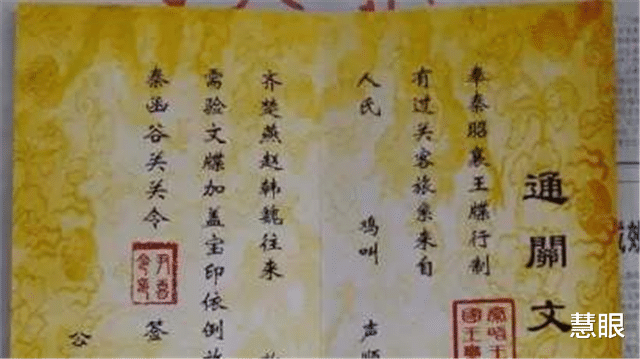 通關文
奉秦昭襄王牒行制
有过关客旅来自
人民 鸡叫 声顺
齐楚燕赵韩魏往来
需验文牒加盖宝印依例
秦函谷关关令 签
公
慧眼